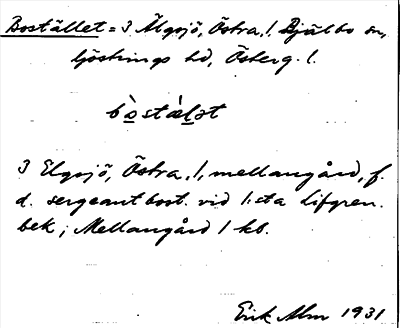 Bostället = 3 Älgsjö, Östra, 1, Bjälbo sn,
Göstrings hd, Österg. l.
bo̱stäḻət
3 Elgsjö, Östra, 1, mellangård, f.
d. sergeantbost. vid 1:sta Lifgren.
bek; Mellangård 1 kb.
Erik Alm 1931